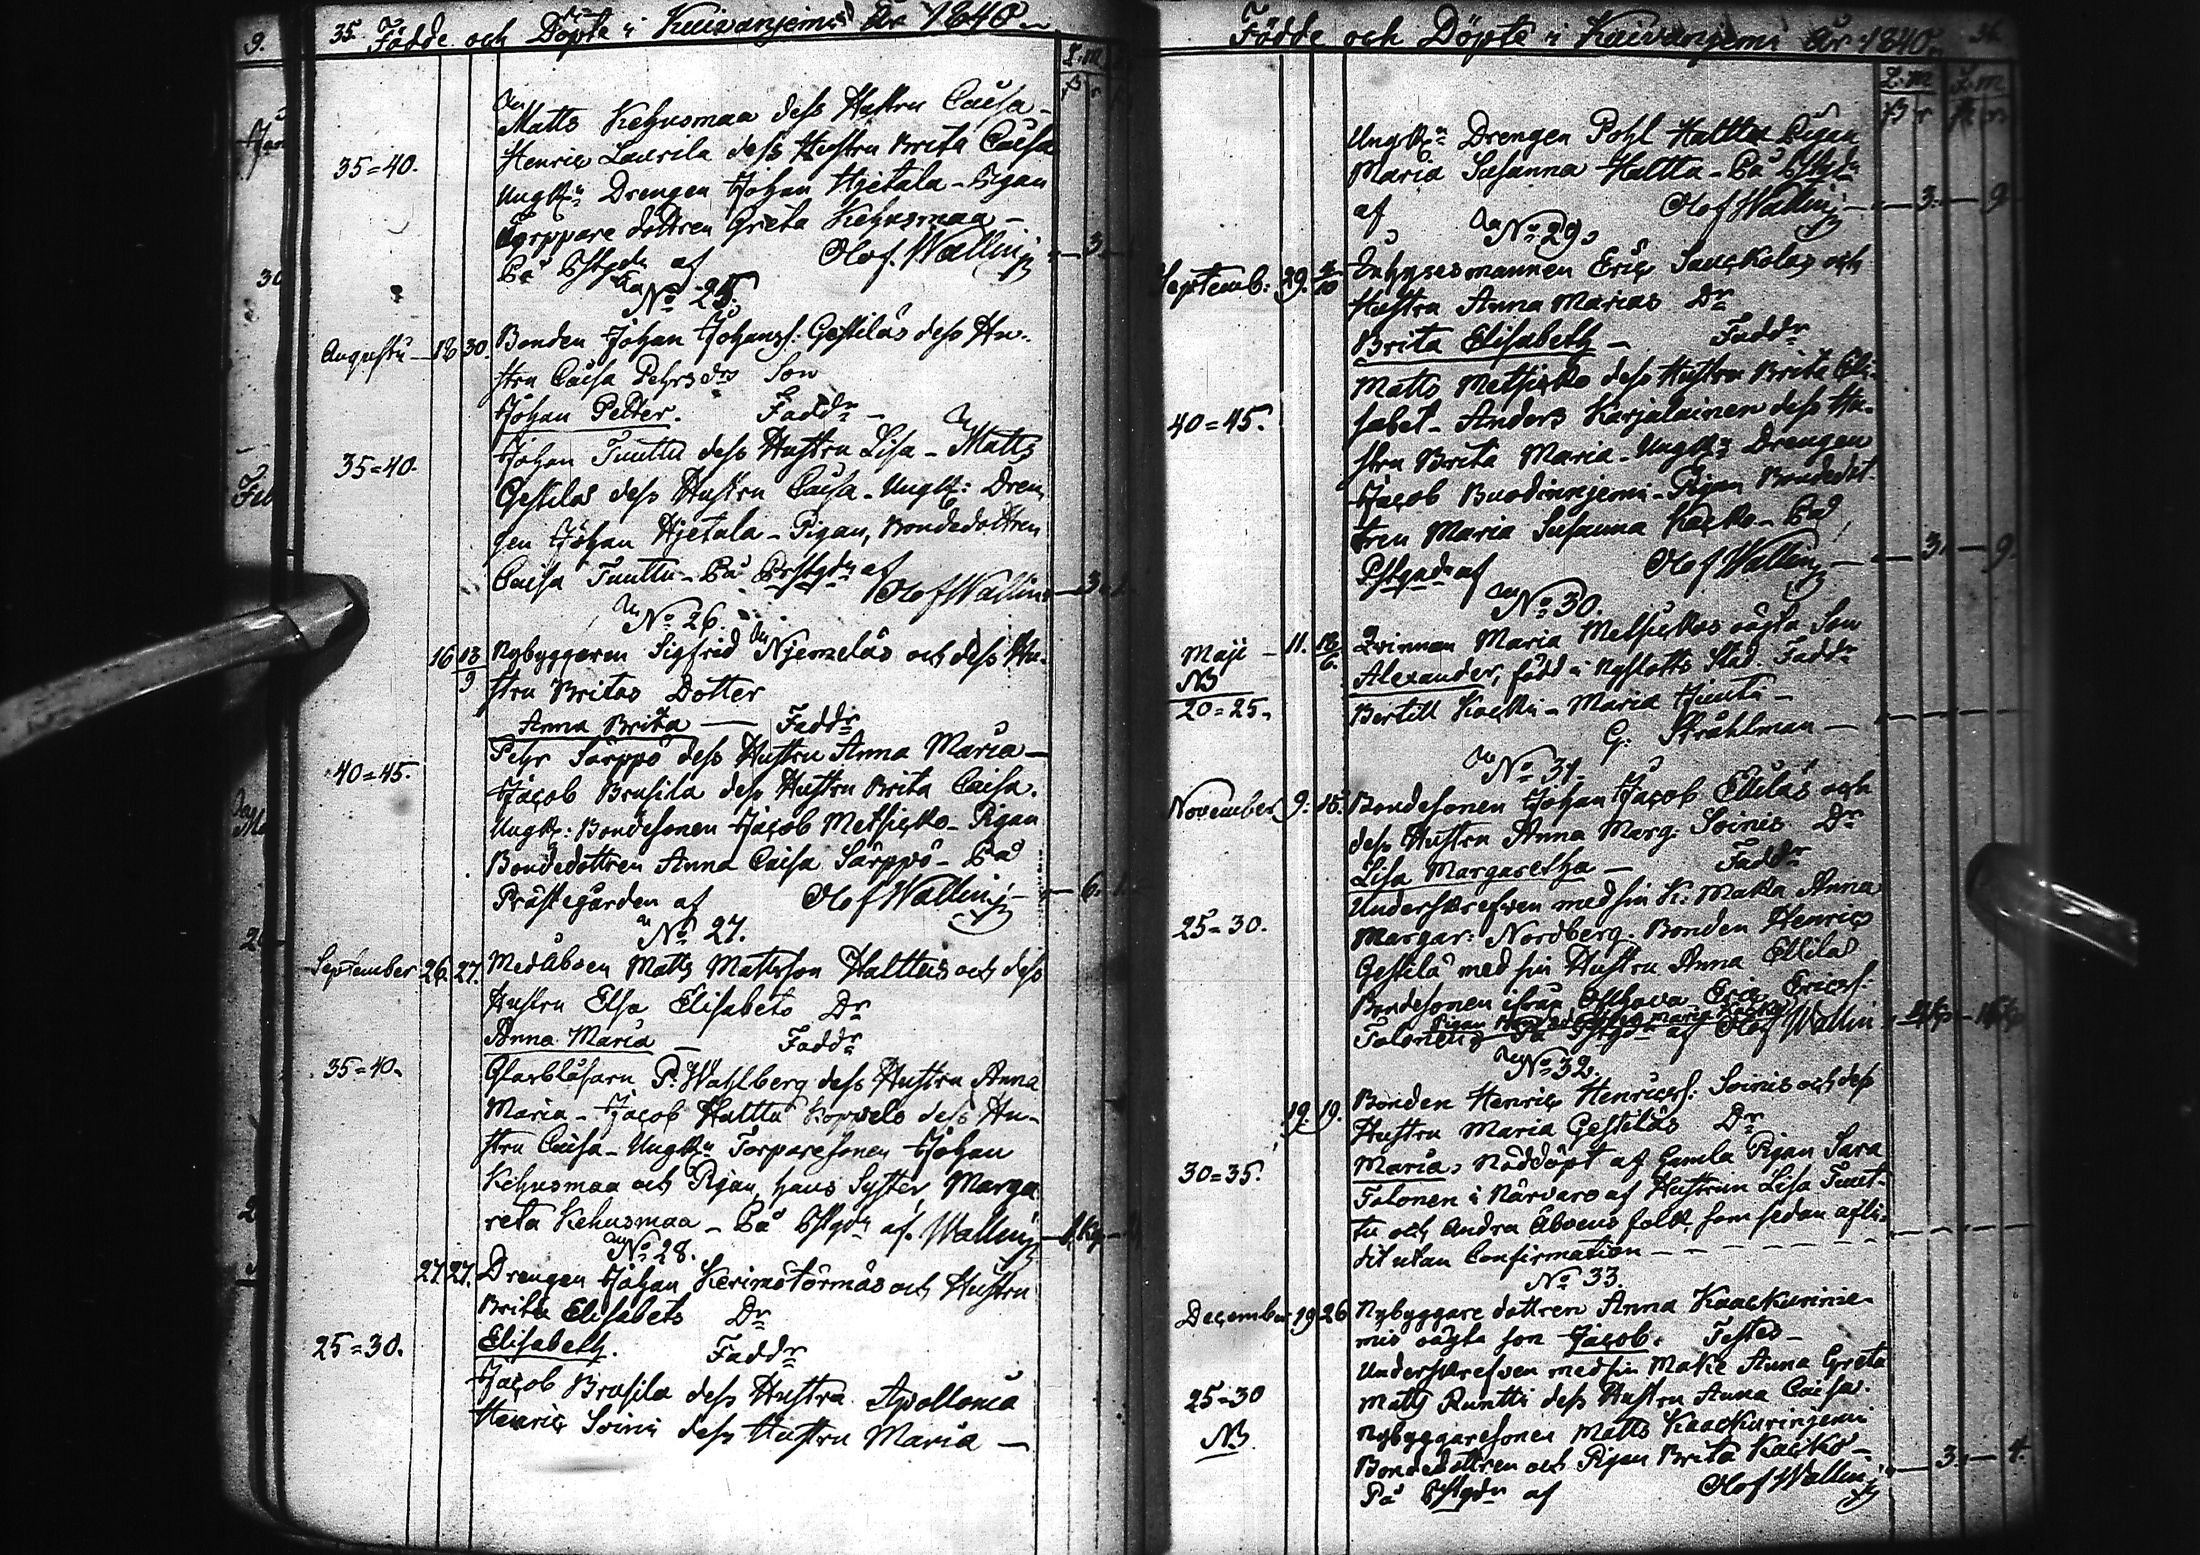 35. Födde och Döpte i Kuivanjemi År 1840
L.m.
Matts Kehusmaa dess Hustru Caisa -
Henric Laurila dess Hustru Brita Caisa
35=40.
Ungk: Drengen Johan Hjetala - Pigan
Torppare dottren Greta Kehusmaa -
På Pstgdn af Olof Wallin - 3.
No 25.
Augusti - 18 30. Bonden Johan Johanss: Gestiläs dess Hu-
stru Caisa Pehrsdrs Son
Johan Petter. Faddr -
35=40. Johan Tuuttu dess Hustru Lisa - Matts
Gestilas dess Hustru Caisa - Ungk: Dren
gen Johan Hjetala - Pigan, Bondedottren
Caisa Tuuttu - På Prstgdn af
Olof Wallin - 3.
No 26.
16 13/9 Nybyggaren Sigfrid Njemeläs och dess Hu-
stru Britas Dotter
Anna Brita - Faddr
Pehr Särppö dess Hustru Anna Maria -
40=45. Jacob Brusila dess Hustru Brita Caisa.
Ungk: Bondesonen Jacob Metsickö - Pigan
Bondedottren Anna Caisa Särppö - På
Prästegården af Olof Wallin - 6.
No 27.
September 26. 27. Medåboen Matts Mattsson Halttus och dess
Hustru Elsa Elisabets Dr
Anna Maria - Faddr
35=40. Glasblåsarn P. Wahlberg dess Hustru Anna
Maria - Jacob Halttu Koppelo dess Hu-
stru Caisa - Ungkn Torparesonen Johan
Kehusmaa och Pigan, hans Syster, Marga
reta Kehusmaa - På Pstgdn af. Wallin
No 28.
27 27. Drengen Johan Kerimötörmäs och Hustru
Brita Elisabets Dr
25=30. Elisabeth. Faddr
Jacob Brusila dess Hustru Apollonia
Henric Soini dess Hustru Maria -
Födde och Döpte i Kuivanjemi År 1840. 36.
L.m. L.m.
Ungkn Drengen Pohl Halttu Pigan
Maria Susanna Halttu - På Pstgdn
af Olof Wallin - 3. - 9
No 29
Septemb: 29. 4/10 Inhysesmannen Eric Sauckolas och
Hustru Anna Marias Dr
Brita Elisabeth - Faddr
Matts Metsickö dess Hustru Brita Eli-
40=45. sabet - Anders Karjalainen dess Hu-
stru Brita Maria - Ungkn Drengen
Jacob Buodinnjemi - Pigan Bondedot-
tren Maria Susanna Kacko - På
Pstgdn af Olof Wallin - 3. - 9.
No 30.
Maji - 11. Qvinnan Maria Metsickös oägta Son
NB Alexander, född i Nyslotts Stad. Faddr
20=25. Bertill Kacko - Maria Hjeuta -
G. Stråhlman -
No 31.
November 9. 15. Bondesonen Johan Jacob Ellilas och
dess Hustru Anna Marg: Soinis Dr
Lisa Margaretha - Faddr
Underskrefwen med sin K: Maka Anna
25=30. Margar: Nordberg. Bonden Henric
Gestilä med sin Hustru Anna Ellilä
Bondesonen ifrån Olhava Eric Ericss:
Pigan
Falonen På Pstgdn af Olof Wallin
No 32.
19. 19. Bonden Henric Henricss: Soinis och dess
Hustru Maria Gestiläs Dr
30=35. Maria, Nöddöpt af Gamla Pigan Sara
Falonen i Närvaro af Hustrun Lisa Tuut-
tu och Andra Åboens folk, som sedan afli-
dit utan Confirmation -
No 33.
December 19 26 Nybyggare dottren Anna Kaackurinie-
mis oägta son Jacob. Testes -
Underskrefwen med sin Maka Anna Greta
25=30 Matts Runtti dess Hustru Anna Caisa.
NB Nybyggaresonen Matts Kaackurinjemi
Bondedottren och Pigan Brita Kacko -
På Pstgdn af Olof Wallin - 3. - 4.